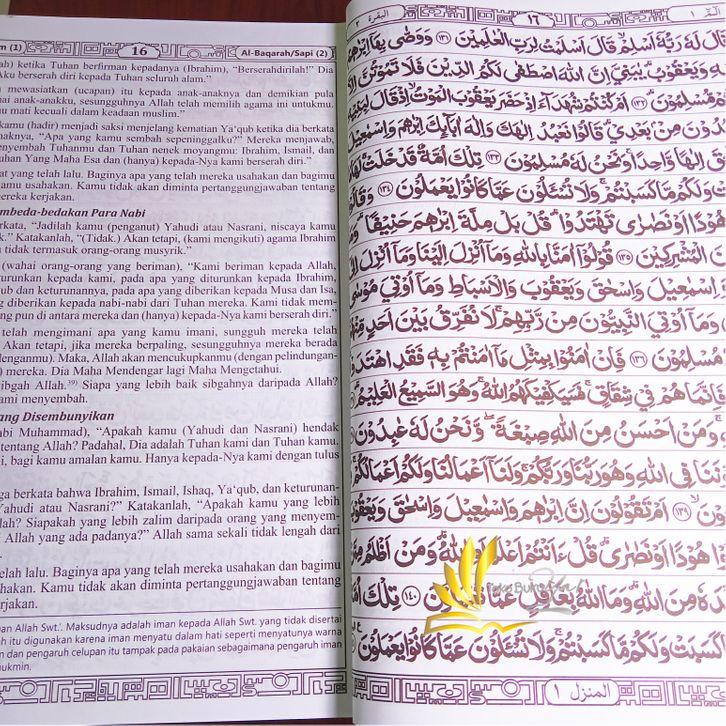 m (1)
16
Al-Baqarah/Sapi (2)
ah) ketika Tuhan berfirman kepadanya (Ibrahim), “Berserahdirilah!” Dia
Aku berserah diri kepada Tuhan seluruh alam.”
mewasiatkan (ucapan) itu kepada anak-anaknya dan demikian pula
hai anak-anakku, sesungguhnya Allah telah memilih agama ini untukmu.
mati kecuali dalam keadaan muslim.”
kamu (hadir) menjadi saksi menjelang kematian Ya‘qub ketika dia berkata
naknya, “Apa yang kamu sembah sepeninggalku?” Mereka menjawab,
enyembah Tuhanmu dan Tuhan nenek moyangmu: Ibrahim, Ismail, dan
uhan Yang Maha Esa dan (hanya) kepada-Nya kami berserah diri.”
at yang telah lalu. Baginya apa yang telah mereka usahakan dan bagimu
amu usahakan. Kamu tidak akan diminta pertanggungjawaban tentang
mereka kerjakan.
mbeda-bedakan Para Nabi
rkata, “Jadilah kamu (penganut) Yahudi atau Nasrani, niscaya kamu
k.” Katakanlah, “(Tidak.) Akan tetapi, (kami mengikuti) agama Ibrahim
tidak termasuk orang-orang musyrik.”
(wahai orang-orang yang beriman), “Kami beriman kepada Allah,
turunkan kepada kami, pada apa yang diturunkan kepada Ibrahim,
ub dan keturunannya, pada apa yang diberikan kepada Musa dan Isa,
g diberikan kepada nabi-nabi dari Tuhan mereka. Kami tidak mem-
ng pun di antara mereka dan (hanya) kepada-Nya kami berserah diri.”
telah mengimani apa yang kamu imani, sungguh mereka telah
Akan tetapi, jika mereka berpaling, sesungguhnya mereka berada
denganmu). Maka, Allah akan mencukupkanmu (dengan pelindungan-
) mereka). Dia Maha Mendengar lagi Maha Mengetahui.
ibgah Allah.³⁹⁾ Siapa yang lebih baik sibgahnya daripada Allah?
ami menyembah.
ang Disembunyikan
abi Muhammad), “Apakah kamu (Yahudi dan Nasrani) hendak
tentang Allah? Padahal, Dia adalah Tuhan kami dan Tuhan kamu.
i, bagi kamu amalan kamu. Hanya kepada-Nya kami dengan tulus
ga berkata bahwa Ibrahim, Ismail, Ishaq, Ya‘qub, dan keturunan-
Yahudi atau Nasrani?” Katakanlah, “Apakah kamu yang lebih
lah? Siapakah yang lebih zalim daripada orang yang menyem-
Allah yang ada padanya?” Allah sama sekali tidak lengah dari
elah lalu. Baginya apa yang telah mereka usahakan dan bagimu
hakan. Kamu tidak akan diminta pertanggungjawaban tentang
erjakan.
an Allah Swt.’. Maksudnya adalah iman kepada Allah Swt. yang tidak disertai
h itu digunakan karena iman menyatu dalam hati seperti menyatunya warna
n dan pengaruh celupan itu tampak pada pakaian sebagaimana pengaruh iman
mukmin.
الٓمّٓ ١
١٦
البقرة ٢
قَالَ لَهٗ رَبُّهٗٓ اَسْلِمْۙ قَالَ اَسْلَمْتُ لِرَبِّ الْعٰلَمِيْنَ ١٣١ وَوَصّٰى بِهَآ اِبْرٰهٖمُ
وَيَعْقُوْبُۗ يٰبَنِيَّ اِنَّ اللّٰهَ اصْطَفٰى لَكُمُ الدِّيْنَ فَلَا تَمُوْتُنَّ
مُّسْلِمُوْنَ ١٣٢ اَمْ كُنْتُمْ شُهَدَاۤءَ اِذْ حَضَرَ يَعْقُوْبَ الْمَوْتُۙ اِذْ قَالَ لِبَنِيْهِ
مِنْۢ بَعْدِيْۗ قَالُوْا نَعْبُدُ اِلٰهَكَ وَاِلٰهَ اٰبَاۤىِٕكَ اِبْرٰهٖمَ وَاِسْمٰعِيْلَ
اِلٰهًا وَّاحِدًاۚ وَنَحْنُ لَهٗ مُسْلِمُوْنَ ١٣٣ تِلْكَ اُمَّةٌ قَدْ خَلَتْۚ لَهَا
وَلَكُمْ مَّا كَسَبْتُمْۚ وَلَا تُسْـَٔلُوْنَ عَمَّا كَانُوْا يَعْمَلُوْنَ ١٣٤ وَقَالُوْا
هُوْدًا اَوْ نَصٰرٰى تَهْتَدُوْاۗ قُلْ بَلْ مِلَّةَ اِبْرٰهٖمَ حَنِيْفًاۗ وَمَا
مِنَ الْمُشْرِكِيْنَ ١٣٥ قُوْلُوْٓا اٰمَنَّا بِاللّٰهِ وَمَآ اُنْزِلَ اِلَيْنَا وَمَآ اُنْزِلَ
وَاِسْمٰعِيْلَ وَاِسْحٰقَ وَيَعْقُوْبَ وَالْاَسْبَاطِ وَمَآ اُوْتِيَ مُوْسٰى
وَمَآ اُوْتِيَ النَّبِيُّوْنَ مِنْ رَّبِّهِمْۚ لَا نُفَرِّقُ بَيْنَ اَحَدٍ مِّنْهُمْ
مُسْلِمُوْنَ ١٣٦ فَاِنْ اٰمَنُوْا بِمِثْلِ مَآ اٰمَنْتُمْ بِهٖ فَقَدِ اهْتَدَوْا
فَاِنَّمَا هُمْ فِيْ شِقَاقٍۚ فَسَيَكْفِيْكَهُمُ اللّٰهُۚ وَهُوَ السَّمِيْعُ الْعَلِيْمُ
وَمَنْ اَحْسَنُ مِنَ اللّٰهِ صِبْغَةًۖ وَّنَحْنُ لَهٗ عٰبِدُوْنَ
فِى اللّٰهِ وَهُوَ رَبُّنَا وَرَبُّكُمْۚ وَلَنَآ اَعْمَالُنَا وَلَكُمْ اَعْمَالُكُمْ
١٣٩ اَمْ تَقُوْلُوْنَ اِنَّ اِبْرٰهٖمَ وَاِسْمٰعِيْلَ وَاِسْحٰقَ وَيَعْقُوْبَ
هُوْدًا اَوْ نَصٰرٰىۗ قُلْ ءَاَنْتُمْ اَعْلَمُ اَمِ اللّٰهُۗ وَمَنْ اَظْلَمُ
مِنَ اللّٰهِۗ وَمَا اللّٰهُ بِغَافِلٍ عَمَّا تَعْمَلُوْنَ ١٤٠ تِلْكَ
كَسَبَتْ وَلَكُمْ مَّا كَسَبْتُمْۚ وَلَا تُسْـَٔلُوْنَ عَمَّا كَانُوْا يَعْمَلُوْنَ
المنزل ١